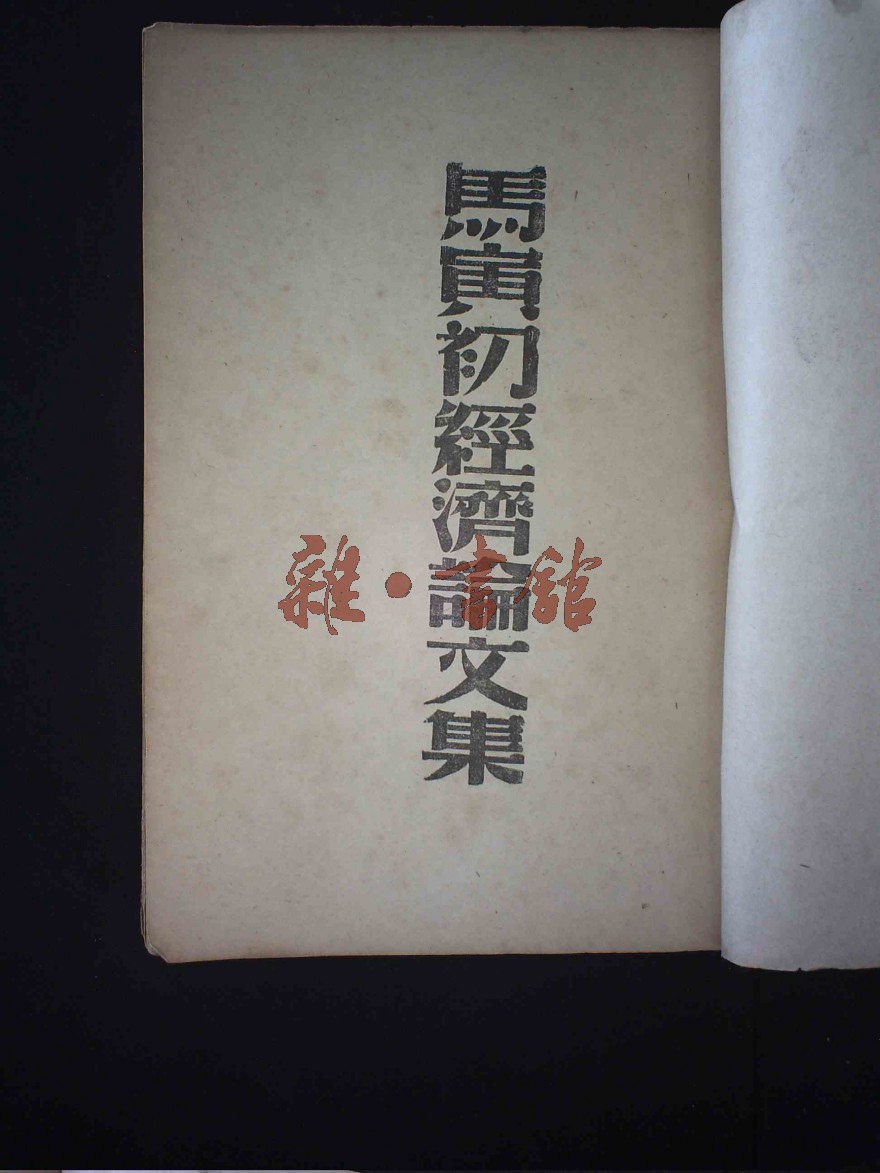 馬寅初經濟論文集
雜·書館